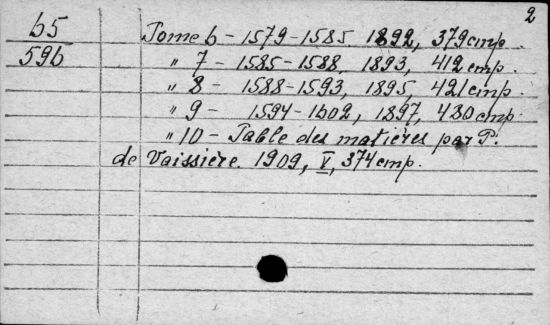 2
65 Tome 6 - 1579-1585. 1892, 379 стр.
596 " 7 - 1585-1588, 1893, 412 стр.
" 8 - 1588-1593, 1895, 421 стр.
" 9 - 1594-1602, 1897, 480 стр.
" 10 - Table des matières par P.
de Vaissière. 1909, V, 374 стр.